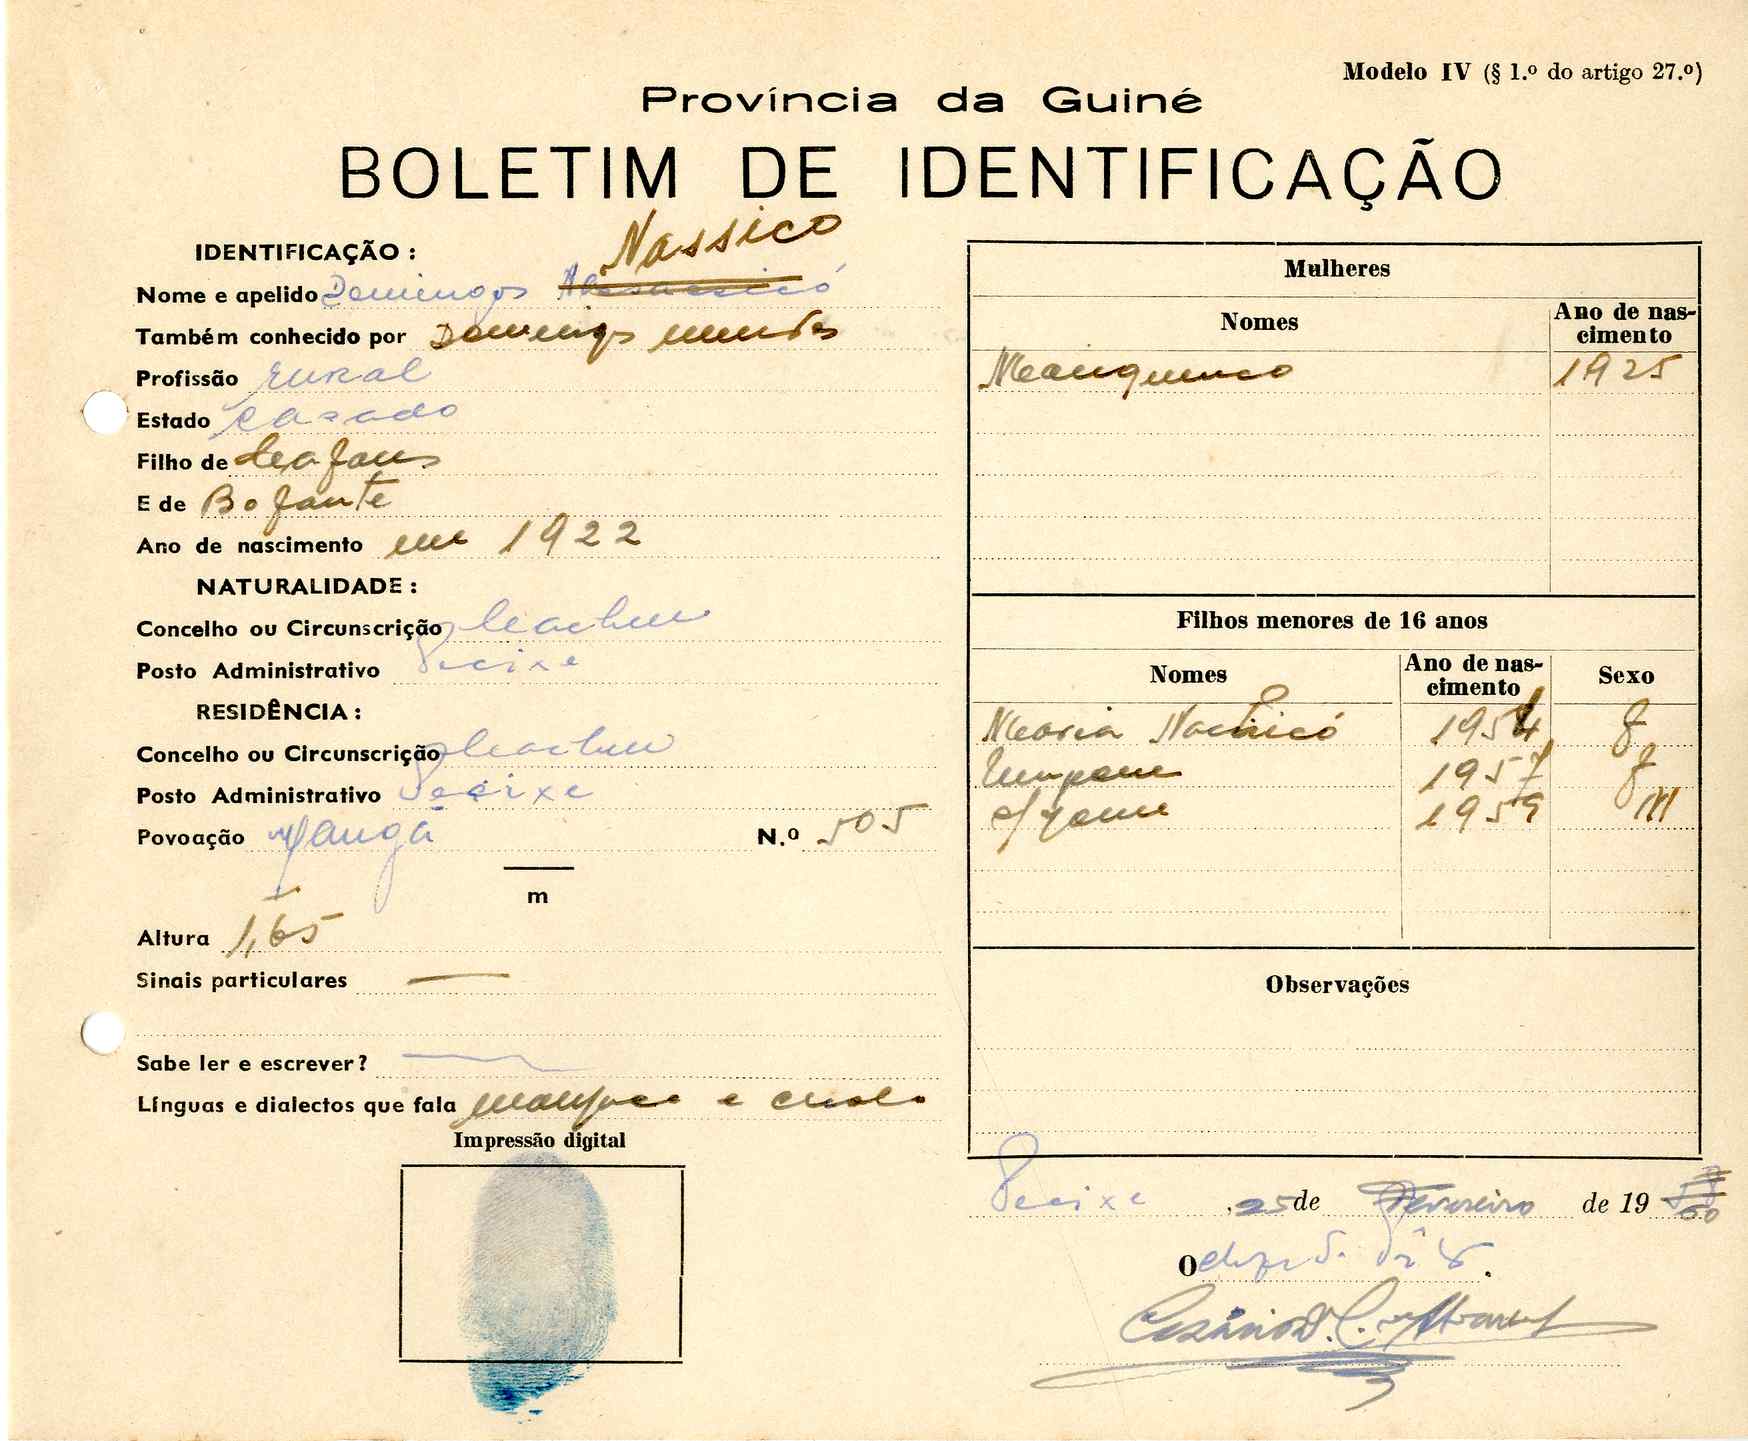 Modelo IV (§ 1.º do artigo 27.º)
Província da Guiné
BOLETIM DE IDENTIFICAÇÃO
IDENTIFICAÇÃO :
Nassico
Nome e apelido Domingos
Também conhecido por Domingos mendes
Profissão rural
Estado casado
Filho de
E de Bofante
Ano de nascimento em 1922
NATURALIDADE :
Concelho ou Circunscrição Cacheu
Posto Administrativo Pecixe
RESIDÊNCIA :
Concelho ou Circunscrição Cacheu
Posto Administrativo Pecixe
Povoação N.º 505
m
Altura 1,65
Sinais particulares —
Sabe ler e escrever?
Línguas e dialectos que fala manjaco e criolo
Impressão digital
Mulheres
Nomes
Ano de nas-
cimento
1925
Filhos menores de 16 anos
Nomes
Ano de nas-
cimento
Sexo
Maria 1954 f
1957 f
1959 M
Observações
Pecixe, 25 de Fevereiro de 1960
O